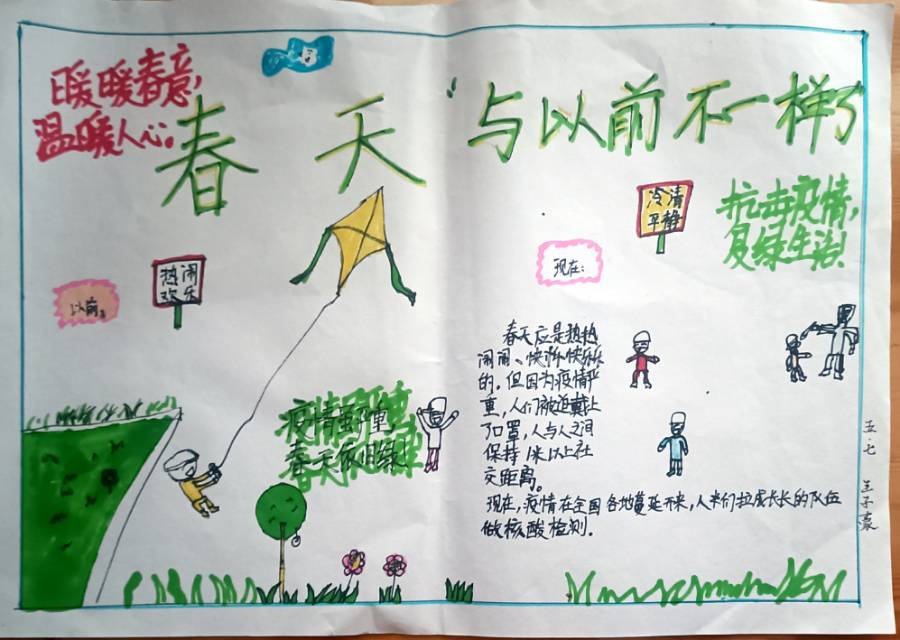 暖暖春意,
温暖人心。
春天与以前不一样了
以前:
热闹
欢乐
疫情虽严重,
春天依旧绿
现在:
冷清
平静
抗击疫情,
绿生活!
春天应是热热
闹闹、快快乐乐
的。但因为疫情严
重,人们被迫戴上
了口罩,人与人之间
保持1米以上社
交距离。
现在,疫情在全国各地蔓延开来,人们拉成长长的队伍
做核酸检测.
五.七 王子